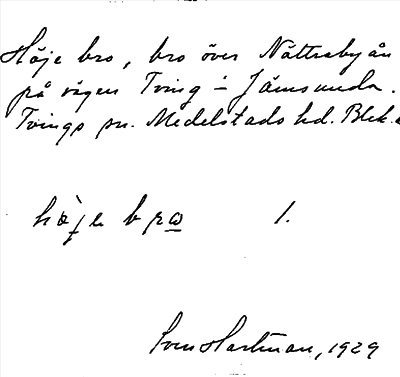 Höje bro, bro över Nättrabyån
på vägen Tving - Jämsunda.
Tvings sn. Medelstads hd. Blek.
hø̀je brω 1.
Sven Hartman, 1929